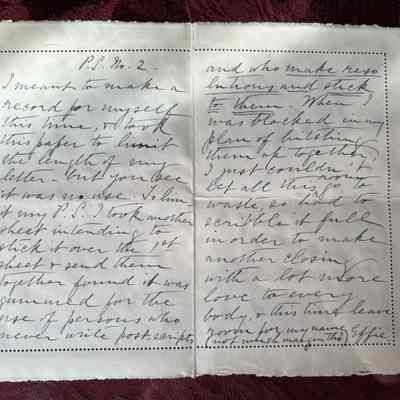 P.S. No. 2.
I meant to make a
record for myself
this time, & took
this paper to limit
the length of my
letter. but you see
it was no use. To limit
my P.S. I took another
sheet intending to
stick it over the 1st
sheet & send them
together found it was
gummed for the
use of persons who
never write post-scripts
and who make reso
lutions and stick
to them. When I
was blocked in my
plan of hitching
them up together,
I just couldn't
let all this go to
waste, so had to
scribble it full
in order to make
another closing
with a lot more
love to every
body, & this time leave
room for my name
(not much margin tho) Effie